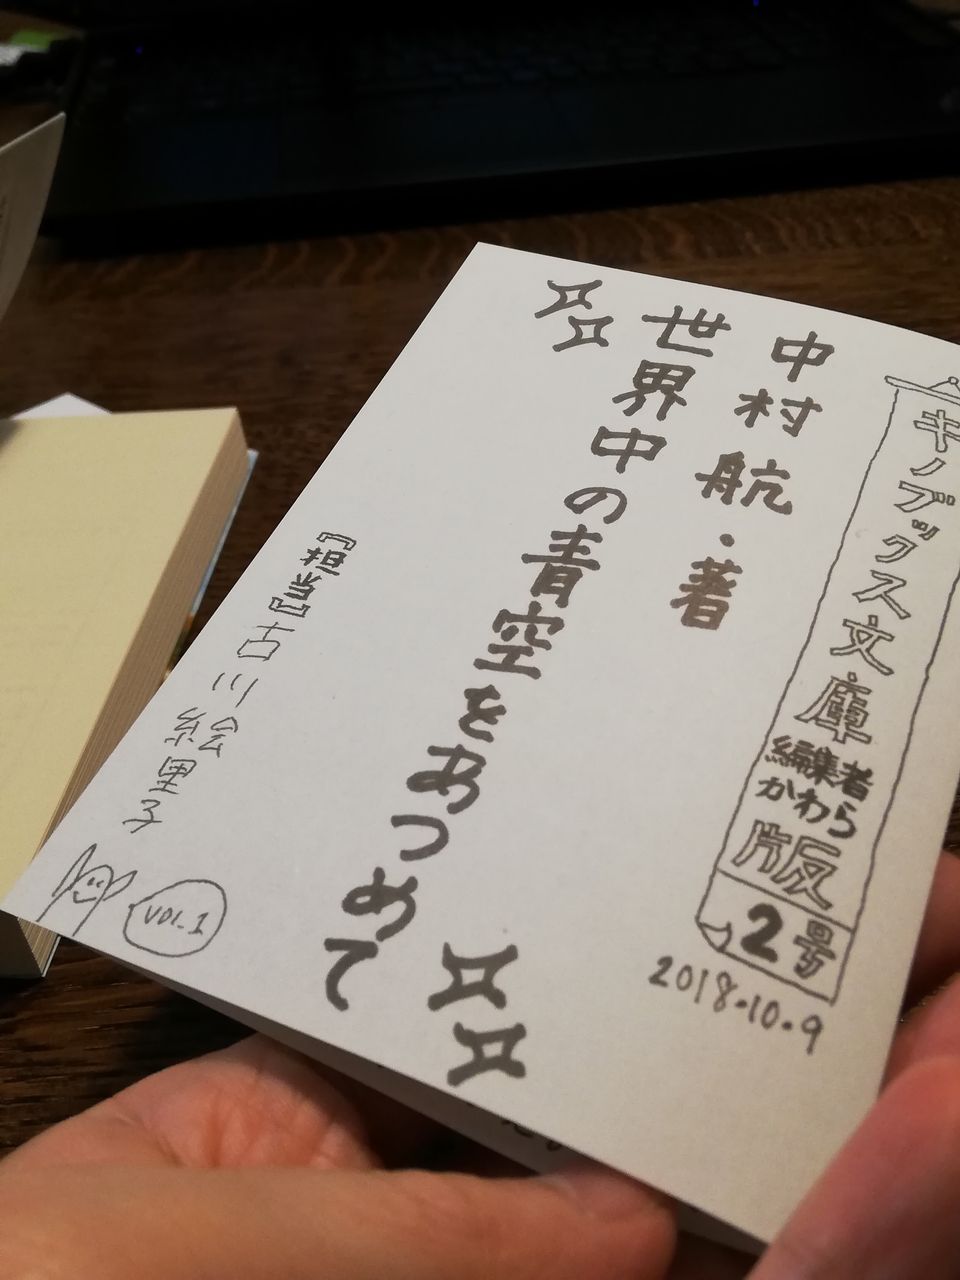 キノブックス文庫
編集者
かわら
版
2号
2018.10.9
中村航・著
世界中の青空をあつめて
『担当』古川絵里子
VOL.1